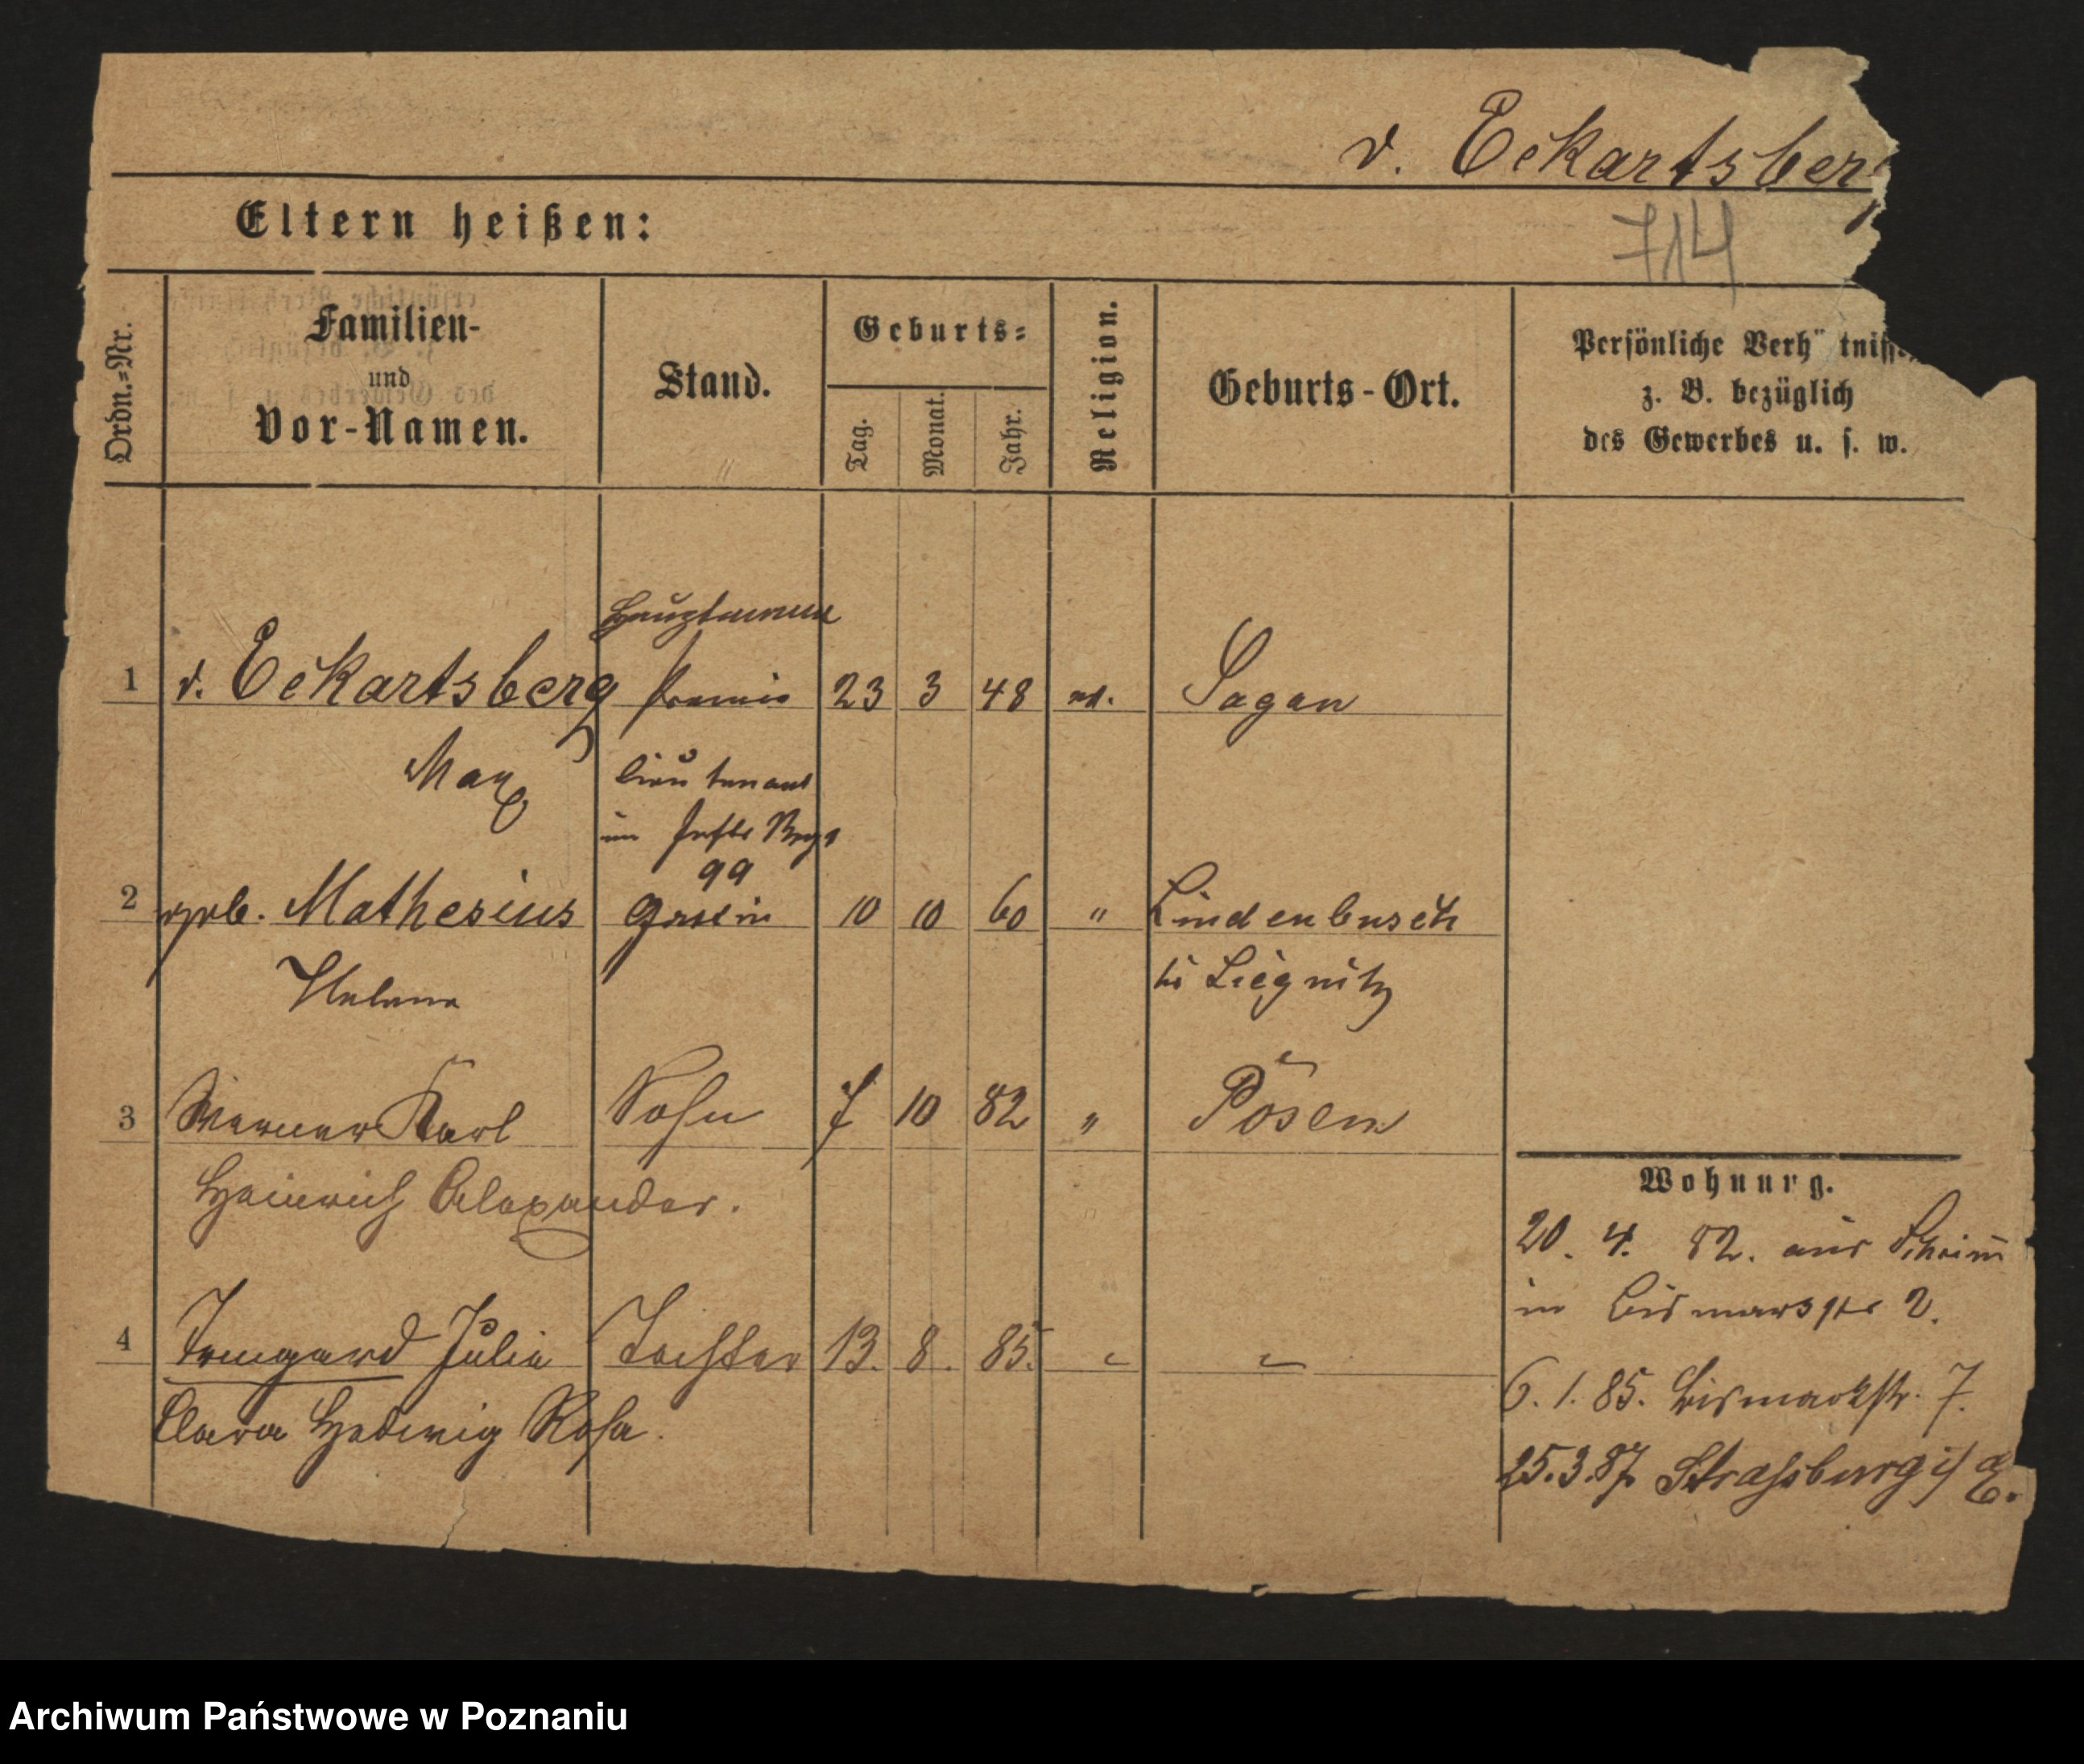 v. Eckartsberg
714
Eltern heißen:
Ordn.-Nr.
Familien-
und
Vor-Namen.
Stand.
Geburts-
Tag.
Monat.
Jahr.
Religion.
Geburts-Ort.
Persönliche Verh tnisse,
z. B. bezüglich
des Gewerbes u. s. w.
Hauptmann
1 v. Eckartsberg Premier 23 3 48 ev. Sagan
Max Lieutenant
im Inftr Regt
99
2 geb. Mathesius Gattin 10 10 60 " Lindenbusch
Helene bei Liegnitz
3 Werner Karl Sohn 7 10 82 " Posen
Heinrich Alexander.
Wohnung.
20. 4. 82. aus
in Bismarckstr 2.
4 Irmgard Julie Tochter 13. 8. 85. " "
6. 1. 85. Bismarckstr. 7.
Clara Hedwig Rosa.
25.3.87. Strassburg i/E.
Archiwum Państwowe w Poznaniu